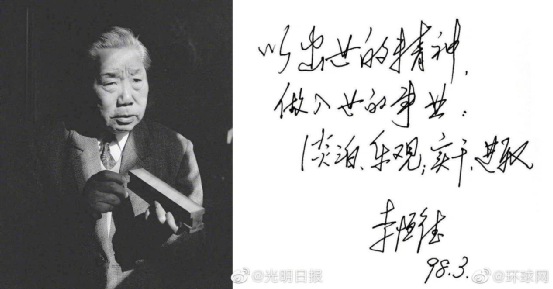 以出世的精神，
做入世的事业：
淡泊、乐观；实干、进取
李恒德
98.3.
@光明日报
@环球网